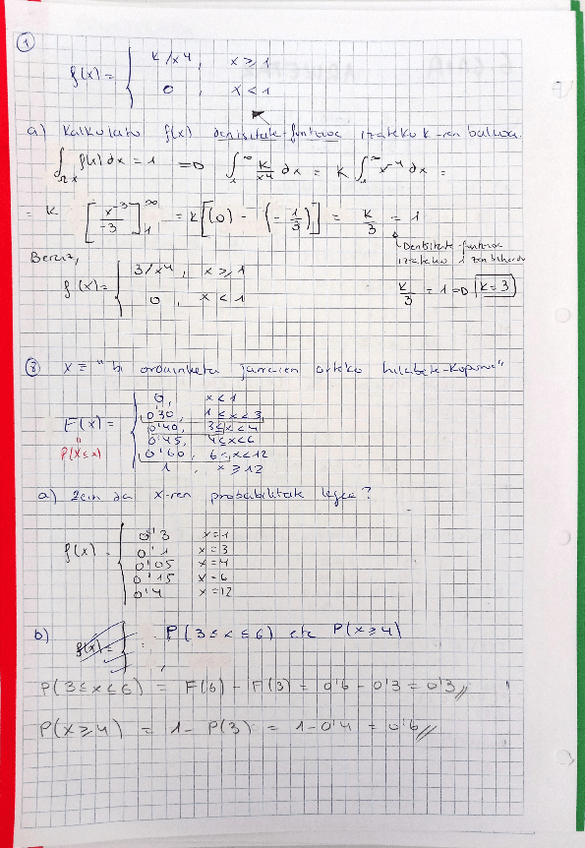 ①
f(x) = { k/x⁴, x ≥ 1
0, x < 1
a) Kalkulatu f(x) dentsitate-funtzioa izateko k-ren balioa.
∫Ωx f(x) dx = 1 => ∫₁^∞ k/x⁴ dx = k ∫₁^∞ x⁻⁴ dx =
= k [x⁻³/-3]₁^∞ = k[(0) - (-1/3)] = k/3 = 1
Dentsitate-funtzioa
izateko 1 izan behar du
Beraz,
f(x) = { 3/x⁴, x ≥ 1
0, x < 1
k/3 = 1 => k = 3
③ X ≡ "bi ordainketa jarraien arteko hilabete-kopurua"
F(x) = { 0, x < 1
0'30, 1 ≤ x < 3
0'40, 3 ≤ x < 4
0'45, 4 ≤ x < 6
0'60, 6 ≤ x < 12
1, x ≥ 12
P(X ≤ x)
a) Zein da X-ren probabilitate legea?
f(x) = { 0'3 x = 1
0'1 x = 3
0'05 x = 4
0'15 x = 6
0'4 x = 12
b) f(x) = { P(3 ≤ x ≤ 6) eta P(x ≥ 4)
P(3 ≤ x ≤ 6) = F(6) - F(3) = 0'6 - 0'3 = 0'3//
P(X ≥ 4) = 1 - P(3) = 1 - 0'4 = 0'6//